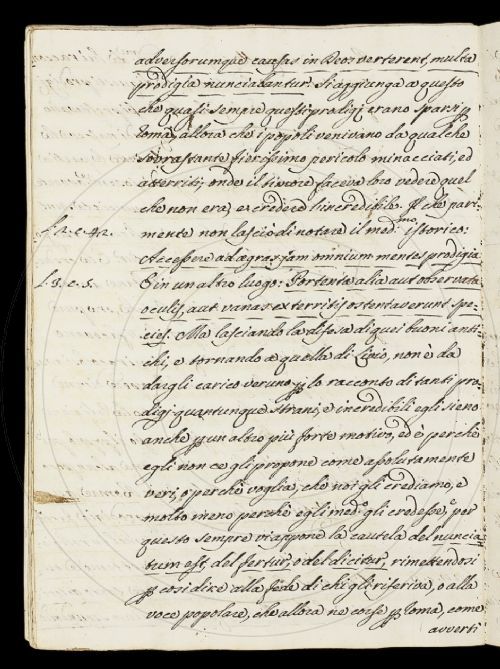 adversorumque causas in Deos verterent, multa
prodigia nunciabantur. Si aggiunga a questo
che quasi sempre questi prodigj erano sparsi p
Roma, allora che i popoli venivano da qualche
sovrastante fierissimo pericolo minacciati, ed
atterriti; onde il timore faceva loro vedere quel
che non era, e credere l'incredibile. Il che pari-
l. 2. c. 42. mente non lasciò di notare il med.mo istorico:
Accessere ad ægras jam omnium mentes prodigia
l. 3. c. 5. E in un altro luogo: Portenta alia aut observata
oculis, aut vanas exterritis ostentaverunt spe-
cies. Ma lasciando la difesa di quei buoni anti-
chi, e tornando a quella di Livio, non è da
dargli carico veruno p lo racconto di tanti pro-
digj quantunque strani, e incredibili egli sieno
anche p un altro più forte motivo, ed è perchè
egli non ce gli propone come assolutamente
veri, o perchè voglia, che noi gli crediamo, e
molto meno perchè egli med.o gli credesse, e per
questo sempre vi appone la cautela del nuncia-
tum est, del fertur, o del dicitur, rimettendosi
p così dire alla fede di chi gli riferiva, o alla
voce popolare, che allora ne corse p Roma, come
avverti